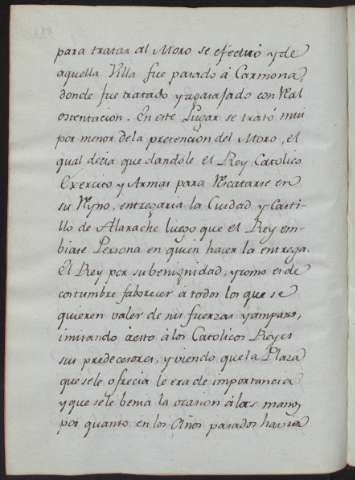 para tratar al Moro se efectuó y de
aquella Villa fue pasado á Carmona,
donde fue tratado y agasajado con Real
ostentacion. En este Lugar se trató mui
por menor de la pretencion del Moro, el
qual decia que dandole el Rey Catolico
Exercito y Armas para Recatarse en
su Reyno, entregaria la Ciudad y Casti-
llo de Alarache luego que el Rey em-
biase Persona en quien hacer la entrega.
el Rey por su benignidad, y como es de
costumbre faborecer á todos los que se
quieren valer de sus fuerzas y amparo,
imitando en esto á los Catolicos Reyes
sus predecesores, y viendo que la Plaza
que se le ofrecia le era de importancia
y que se le benia la ocasion á las manos
por quanto en los Años pasados havia